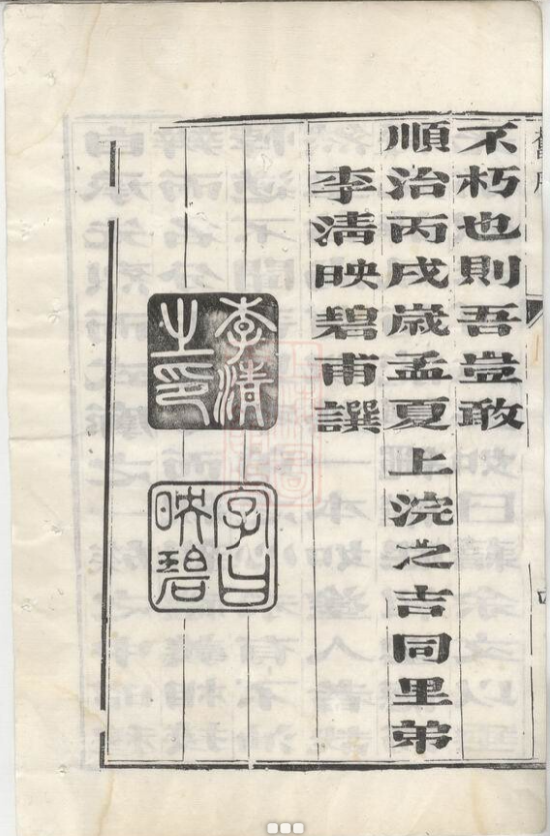 不朽也則吾豈敢
順治丙戌歲孟夏上浣之吉同里弟
李清映碧甫譔
李清之印
字曰映碧